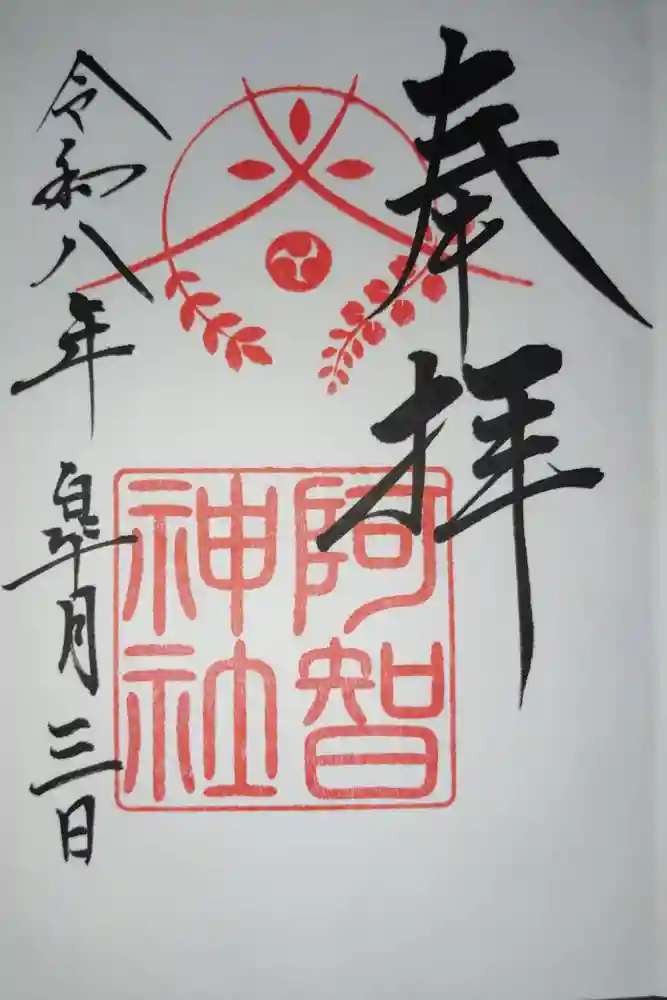 奉拝
阿智
神社
令和八年 皐月 三日